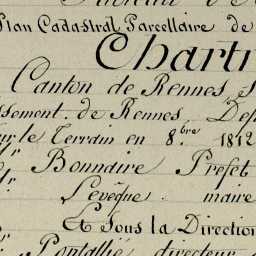 Plan Cadastral Parcellaire de
Chartr
Canton de Rennes,
ssement de Rennes, Dep
sur le Terrain en 8.bre 1812
Mr Bonnaire Prefet
Mr Levêque maire
Et Sous la Direction
Mr Pontallié directeur